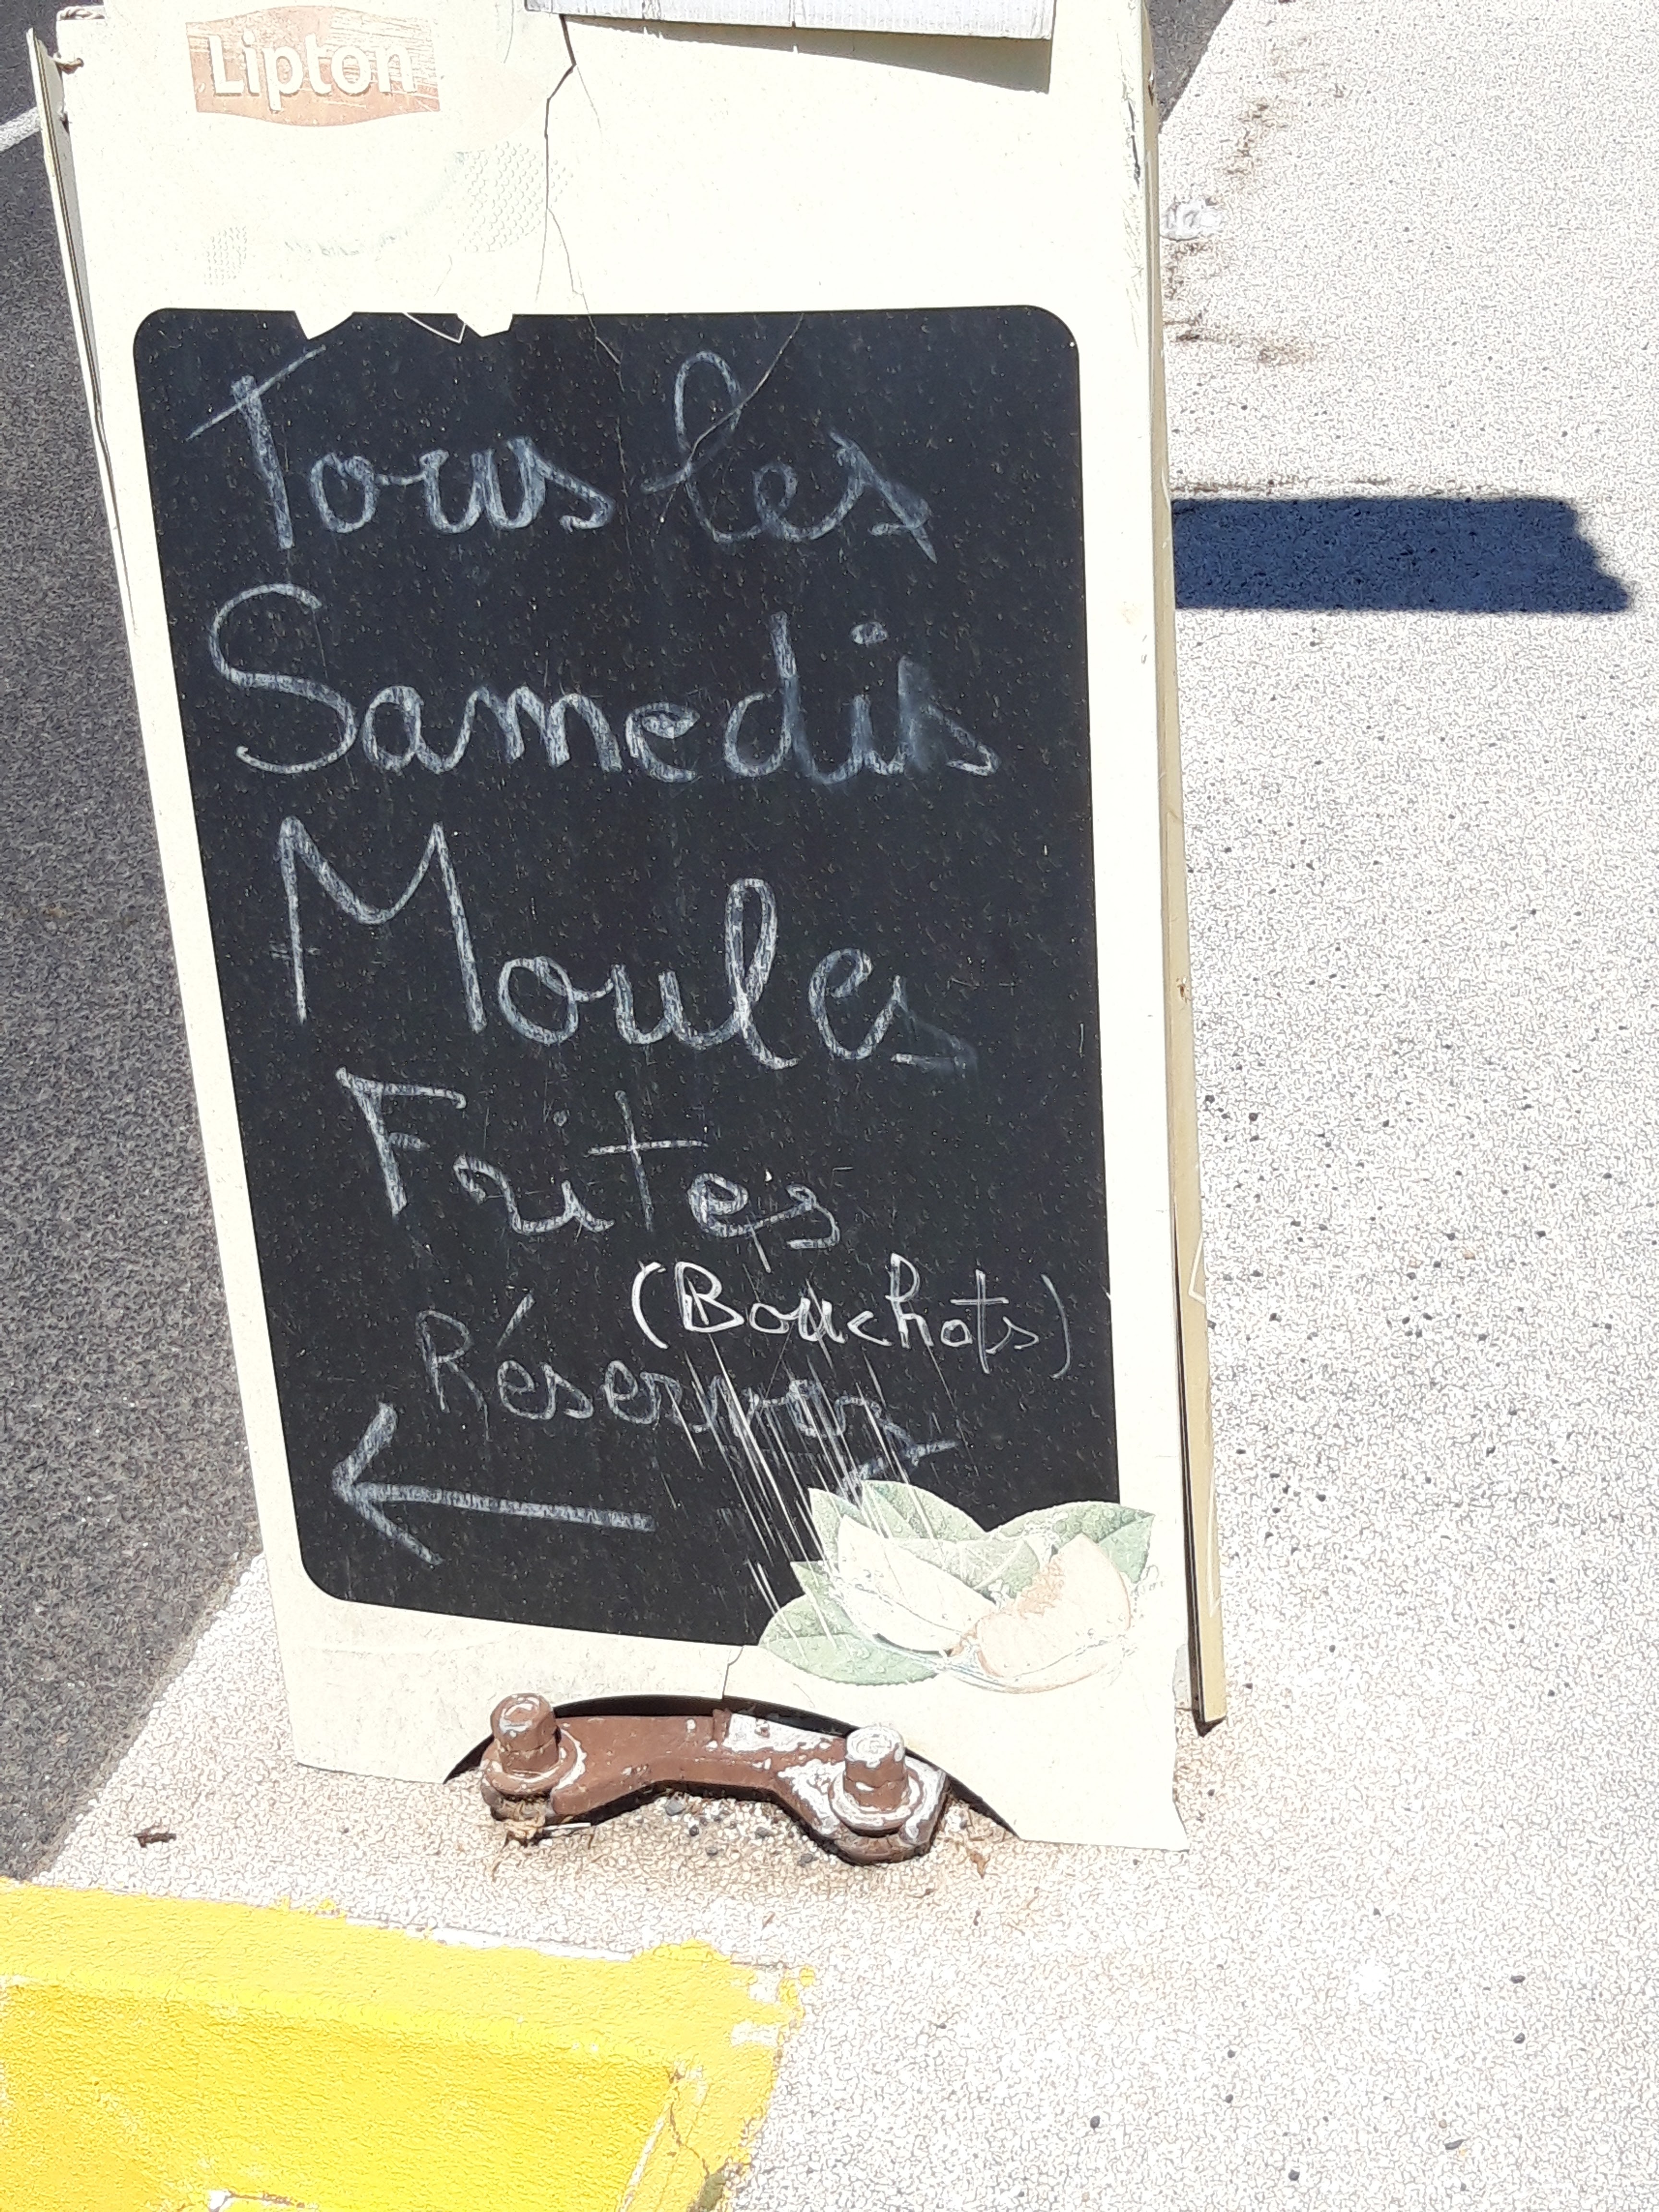 Lipton
Tous les
Samedis
Moules
Frites
(Bouchots)
Réservez